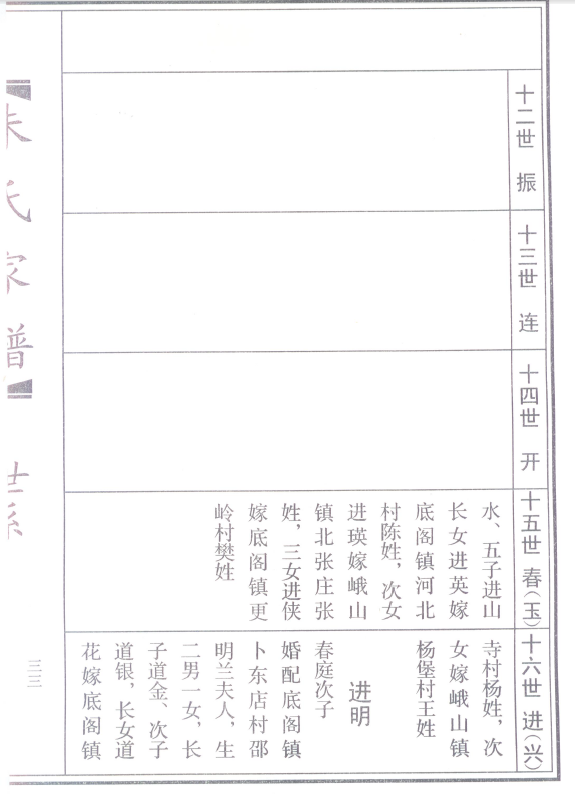 十二世 振
十三世 连
十四世 开
十五世 春(玉)
水、五子进山
长女进英嫁
底阁镇河北
村陈姓，次女
进瑛嫁峨山
镇北张庄张
姓，三女进侠
嫁底阁镇更
岭村樊姓
十六世 进(兴)
寺村杨姓，次
女嫁峨山镇
杨堡村王姓
进明
春庭次子
婚配底阁镇
卜东店村邵
明兰夫人，生
二男一女，长
子道金、次子
道银，长女道
花嫁底阁镇
【朱氏家谱】世系
三三